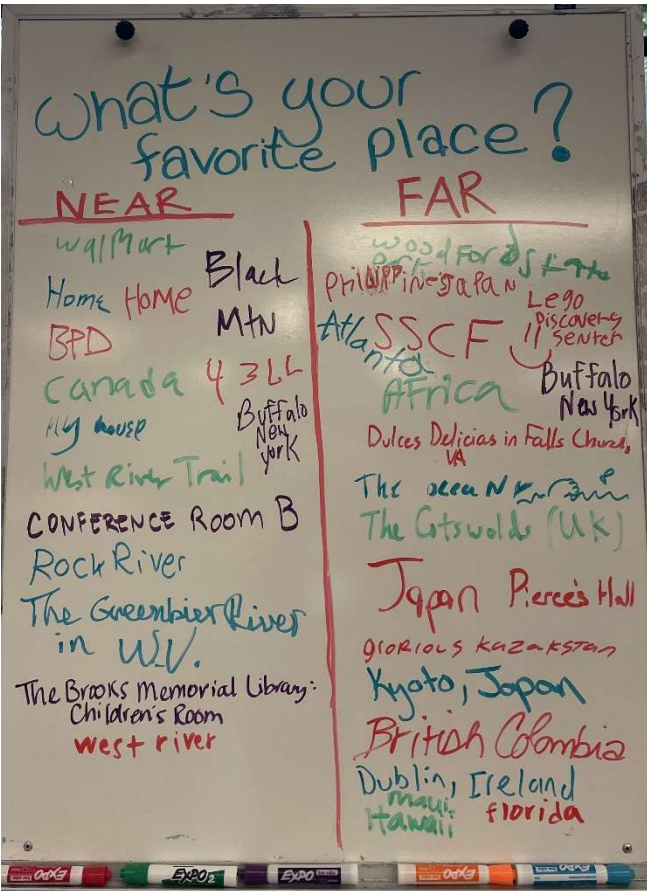 What's your
favorite place?
NEAR
Walmart
Black
Mtn
Home HOME
BPD
Canada
4 3 LL
My house
Buffalo
New
York
West River Trail
CONFERENCE Room B
Rock River
The Greenbier River
in W.V.
The Brooks Memorial Library:
Children's Room
west river
FAR
Philippines Japan
Lego
Discovery
Senter
Atlanta
SSCF
Africa
Buffalo
New York
Dulces Delicias in Falls Church,
VA
The ocean
The Cotswolds (UK)
Japan Pierce's Hall
glorious Kazakstan
Kyoto, Japan
British Colombia
Dublin, Ireland
Maui
Hawaii
florida
EXPO
EXPO 2
EXPO
EXPO
EXPO